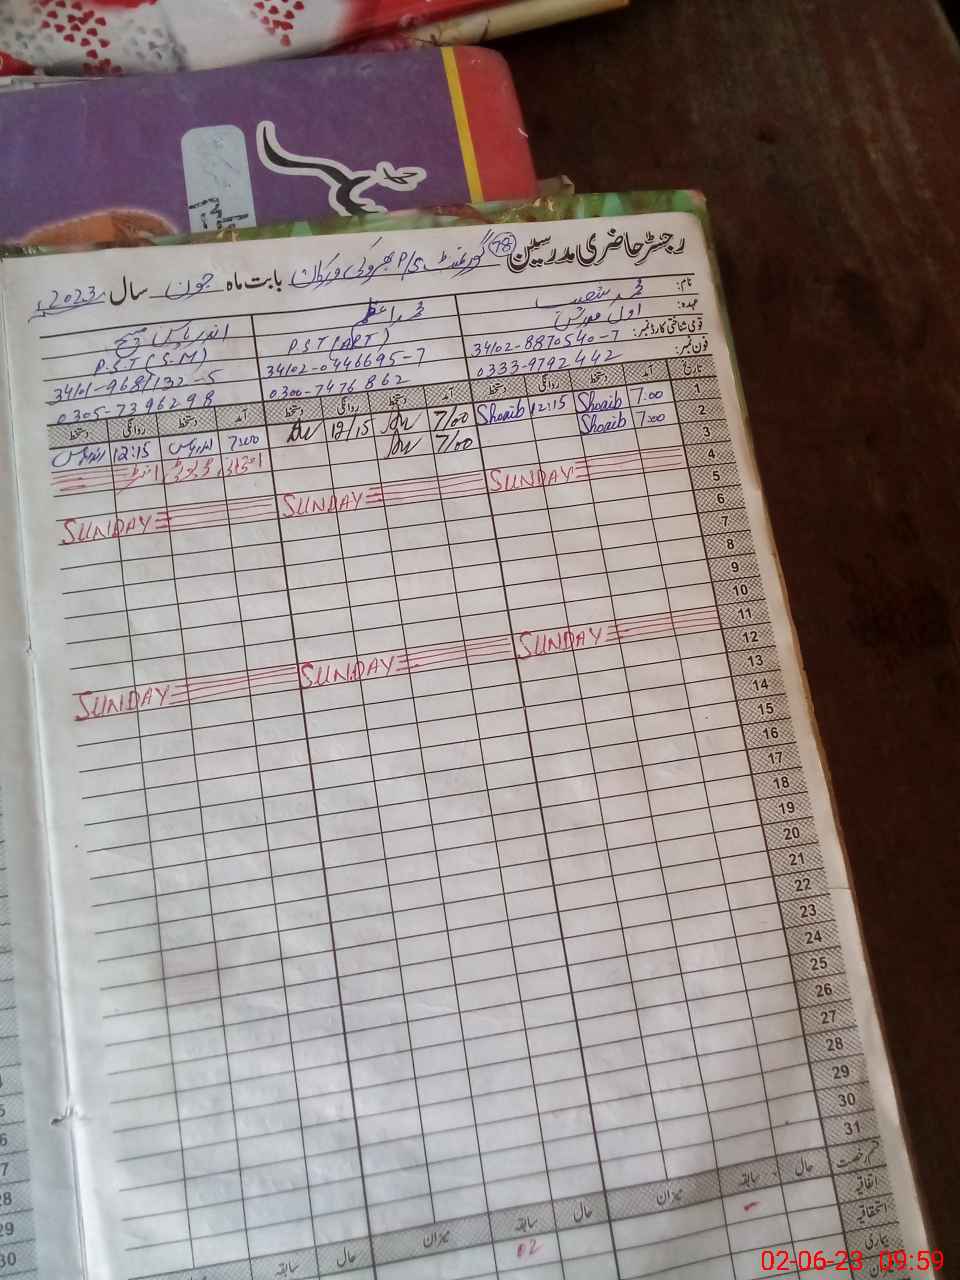 رجسٹر حاضری مدرسین 78 گورنمنٹ P/S بھروکی ورکاں بابت ماہ جون سال 2023ء
نام: محمد شعیب محمد اعظم اندریاس مسیح
عہدہ: اول مدرس PST (APT) P.ST (S.M)
قومی شناختی کارڈ نمبر: 34102-8870540-7 34102-0446695-7 34101-9681132-5
فون نمبر: 0333-9792442 0300-7476862 0305-7396298
تاریخ آمد دستخط روانگی دستخط آمد دستخط روانگی دستخط آمد دستخط روانگی دستخط
1 7:00 Shoaib 12:15 Shoaib 7/00 12/15 7:00 اندریاس 12:15 اندریاس
2 7:00 Shoaib 7/00
3
4 SUNDAY SUNDAY SUNDAY
5
6
7
8
9
10
11 SUNDAY SUNDAY SUNDAY
12
13
14
15
16
17
18
19
20
21
22
23
24
25
26
27
28
29
30
31
قسم رخصت حال سابقہ میزان حال سابقہ میزان حال سابقہ
اتفاقیہ - 02
استحقاقیہ
بیماری
28
29
30
02-06-23 09:59